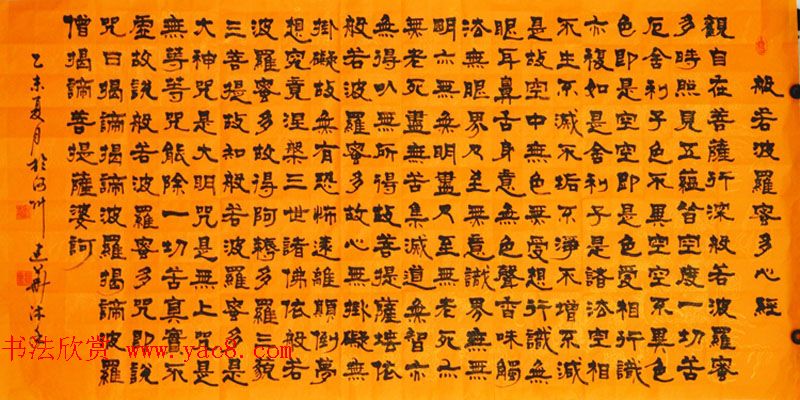 般若波羅蜜多心經
觀自在菩薩行深般若波羅蜜
多時照見五蘊皆空度一切苦
厄舍利子色不異空空不異色
色即是空空即是色受相行識
亦復如是舍利子是諸法空相
不生不滅不垢不淨不增不減
是故空中無色無受想行識無
眼耳鼻舌身意無色聲香味觸
法無眼界乃至無意識界無無
明亦無無明盡乃至無老死亦
無老死盡無苦集滅道無智亦
無得以無所得故菩提薩埵依
般若波羅蜜多故心無掛礙無
掛礙故無有恐怖遠離顛倒夢
想究竟涅槃三世諸佛依般若
波羅蜜多故得阿耨多羅三藐
三菩提故知般若波羅蜜多是
大神咒是大明咒是無上咒是
無等等咒能除一切苦真實不
虛故說般若波羅蜜多咒即說
咒曰揭諦揭諦波羅揭諦波羅
僧揭諦菩提薩婆訶
乙未夏月於
书法欣赏 www.yac8.com